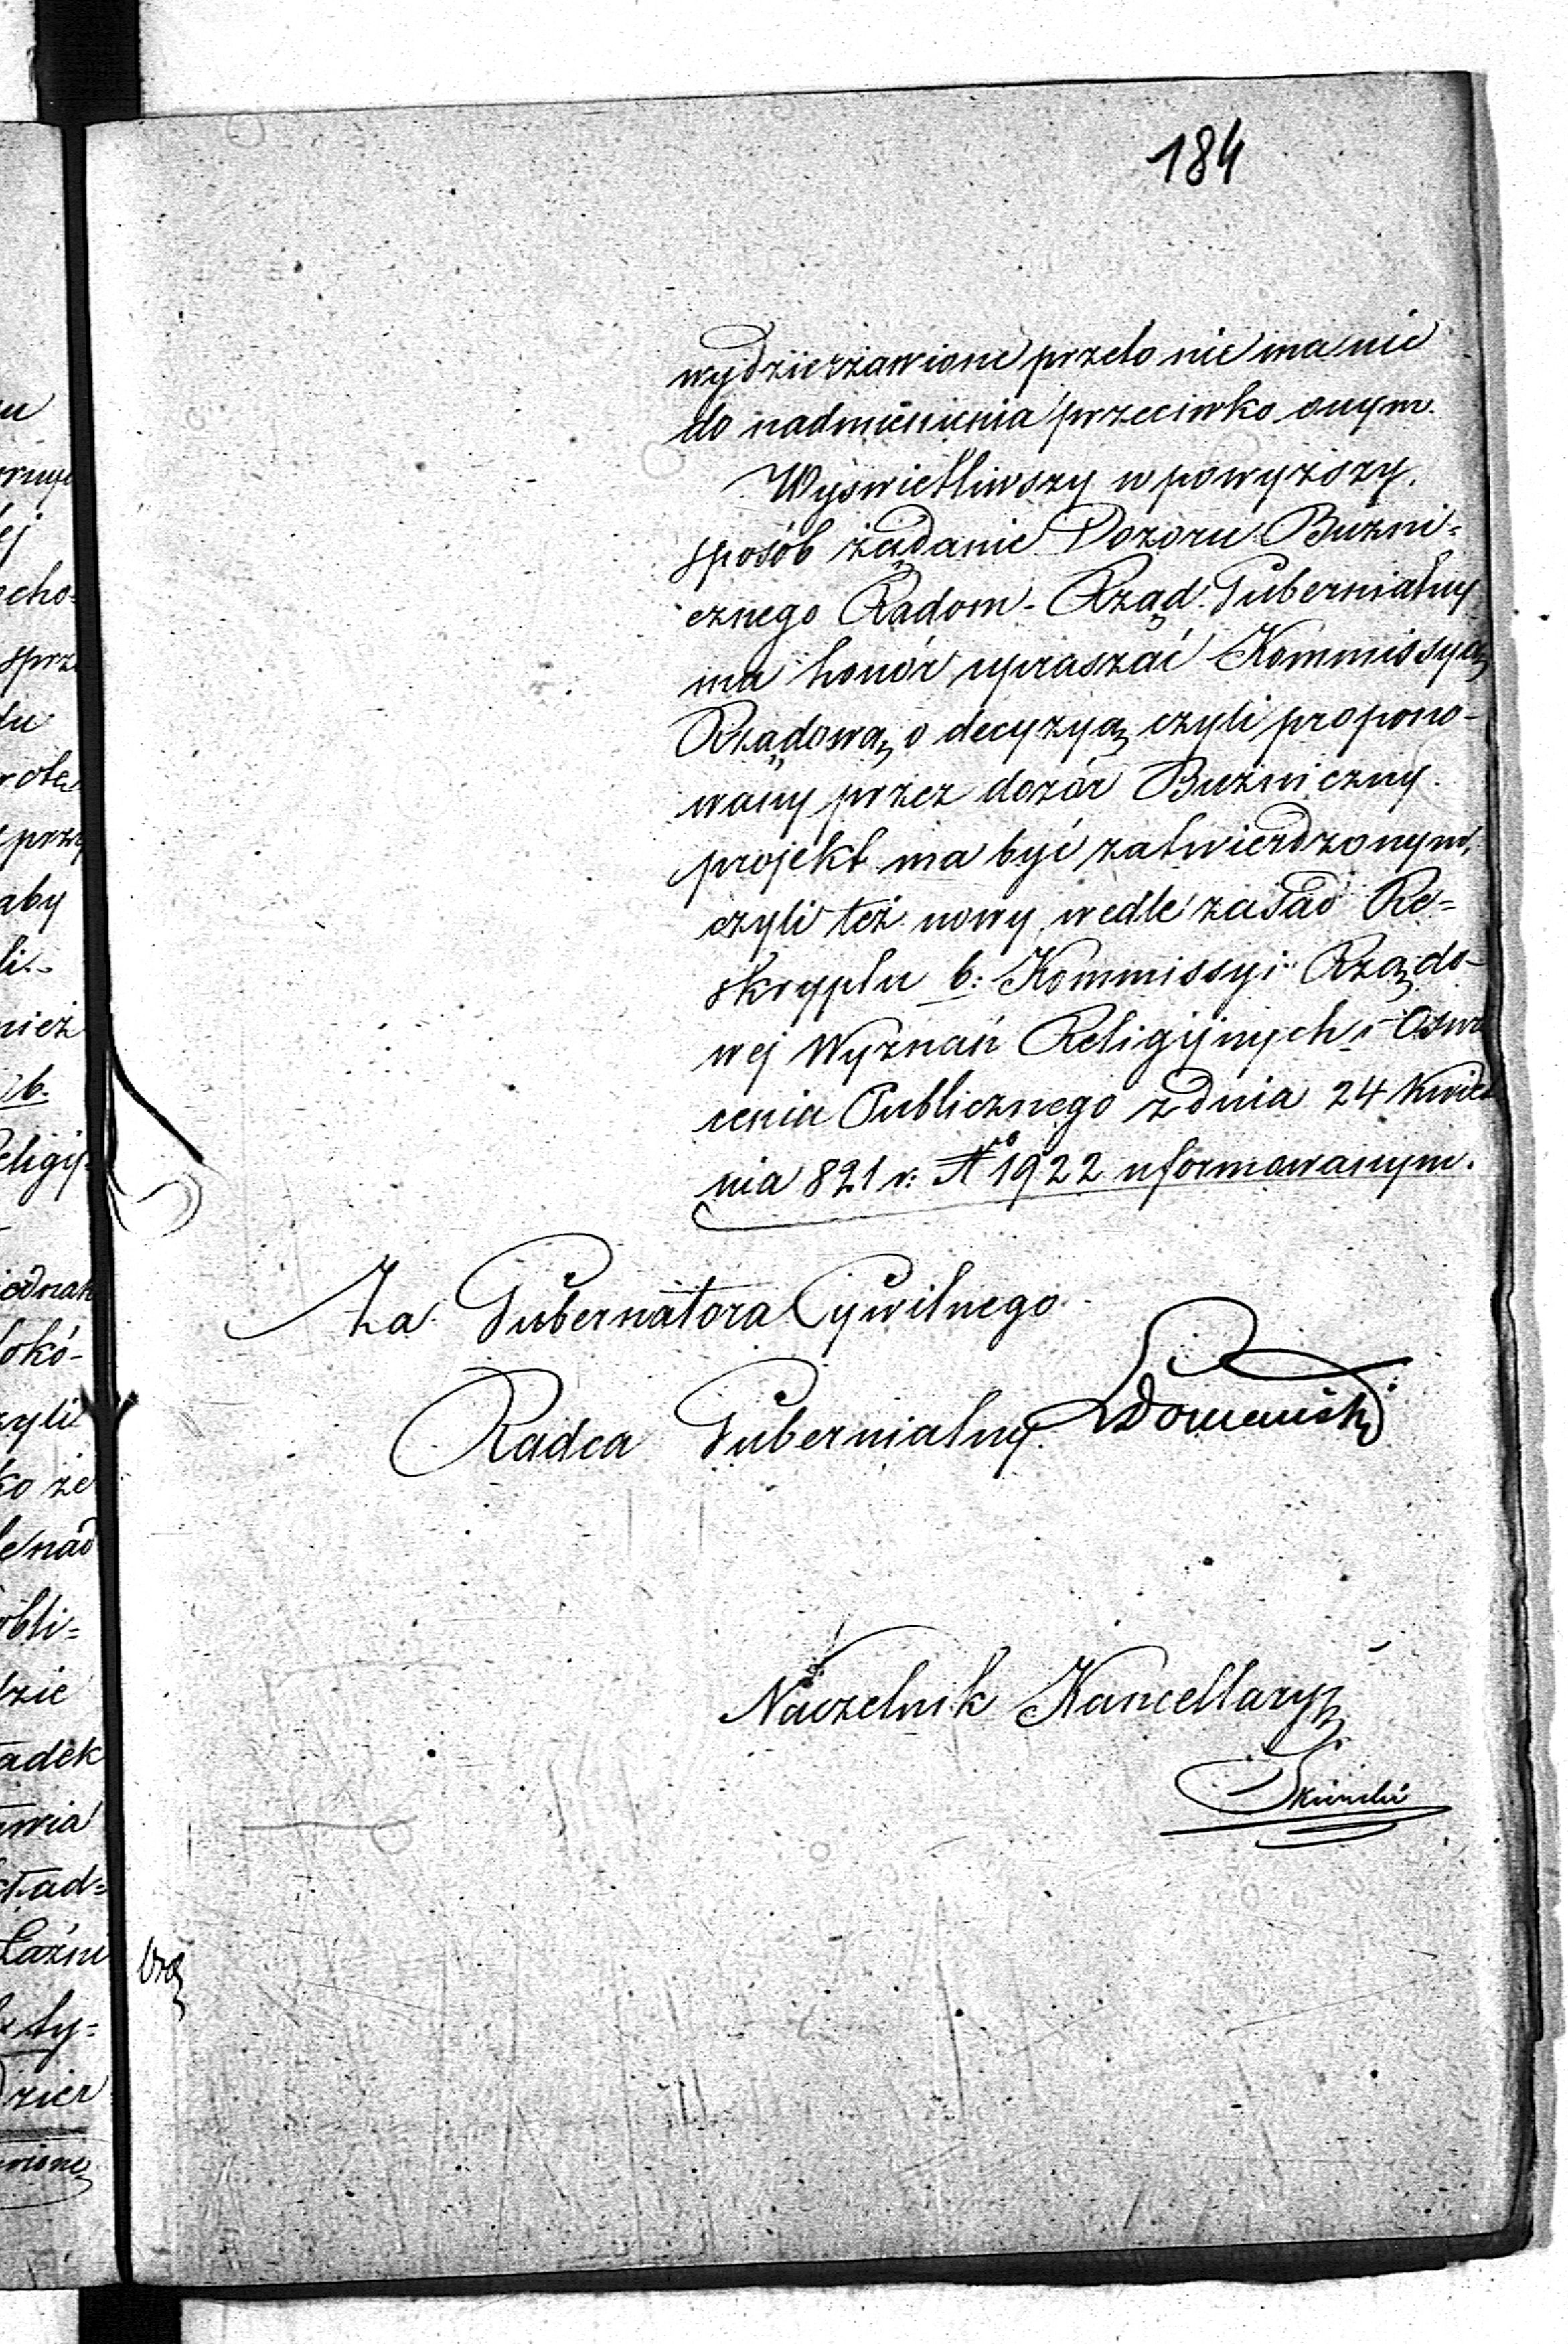 184
wydzierżawione przeto nie ma nic
do nadmienienia przeciwko onym.
Wyświetliwszy w powyższy
sposób żądanie Dozoru Bużni=
cznego Radom. Rząd Gubernialny
ma honór upraszać Kommissyą
Rządową o decyzyą czyli propono-
wany przez dozór Bużniczny
projekt ma być zatwierdzonym,
czyli też nowy wedle zasad Re=
skryptu b: Kommissyi Rządo-
wej Wyznań Religijnych i Oświe
cenia Publicznego z dnia 24 Kwiet
nia 821 r: No 1922 uformowanym.
Za Gubernatora Cywilnego
Radca Gubernialny. Domański
Naczelnik Kancellaryi
u
ej
echo=
sprz
du
przy
aby
li=
nież
b.
Religij
jednak
okó-
czyli
ko że
obli=
dzie
adek
wia
Ład=
Łaźni
ty=
dzier
wione